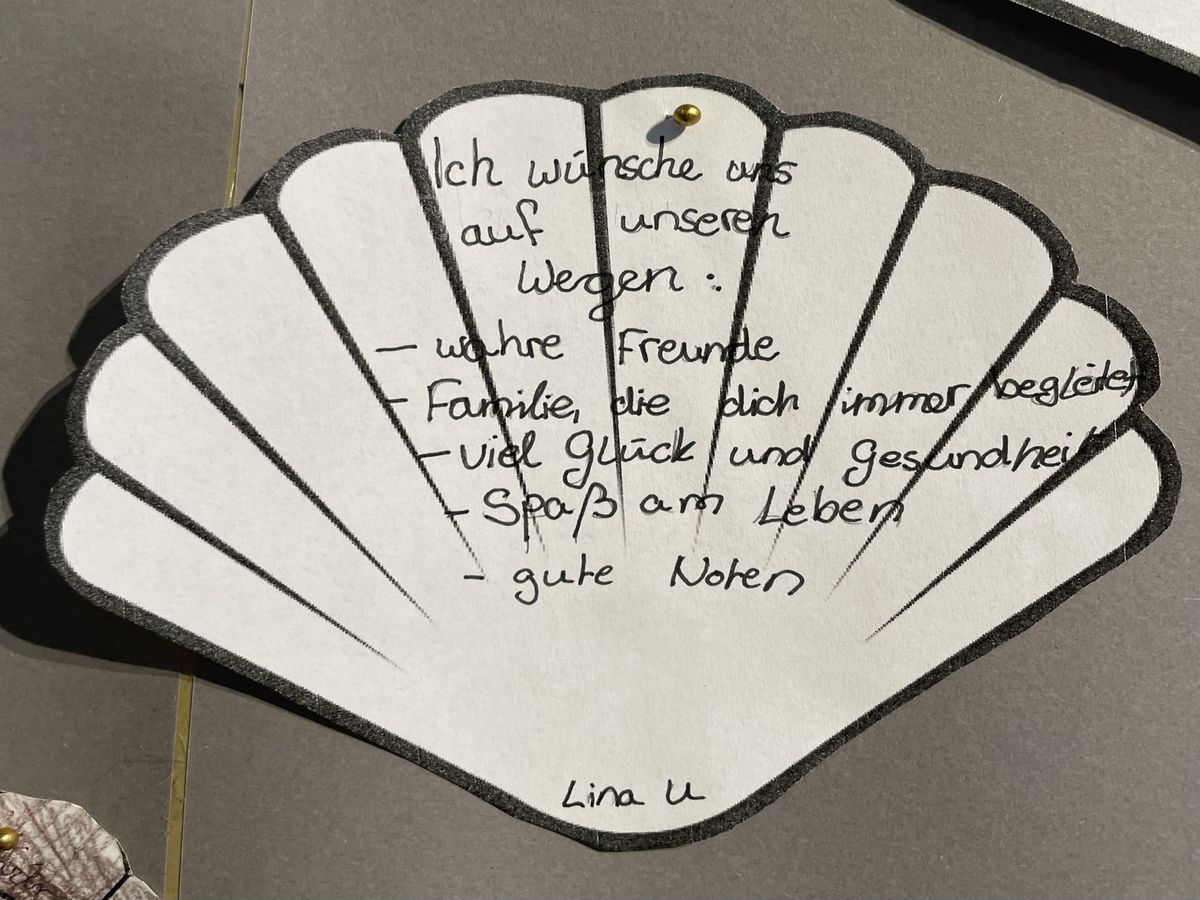 Ich wünsche uns
auf unseren
Wegen :
- wahre Freunde
- Familie, die dich immer begleitet
- viel Glück und Gesundheit
- Spaß am Leben
- gute Noten
Lina U